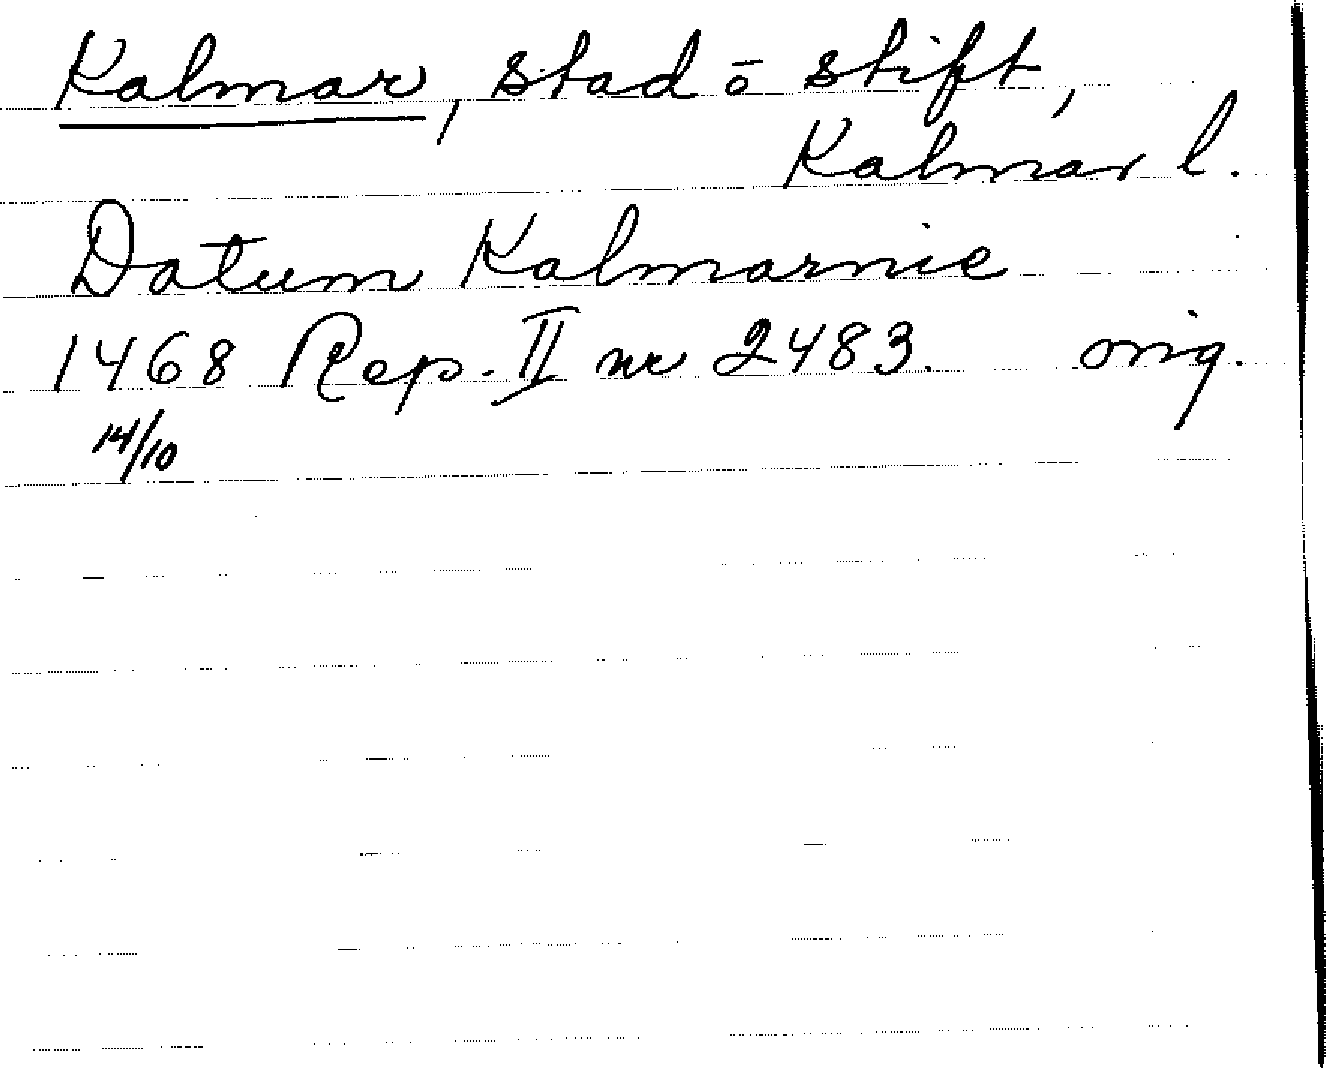 Kalmar, stad o stift,
Kalmar l.
Datum Kalmarnie
1468 Rep. II nr 2483. orig.
14/10